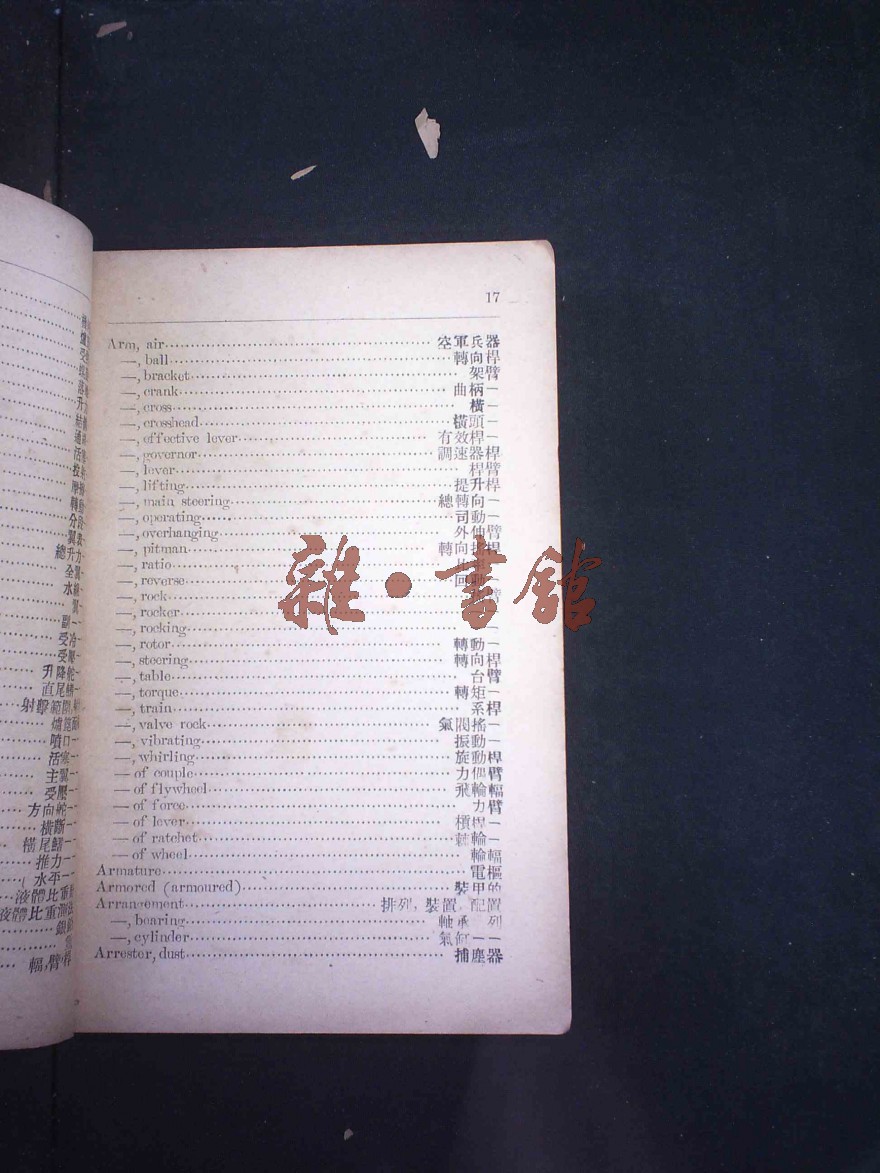 17
Arm, air 空軍兵器
—, ball 轉向桿
—, bracket 架臂
—, crank 曲柄–
—, cross 橫–
—, crosshead 橫頭–
—, effective lever 有效桿–
—, governor 調速器桿
—, lever 桿臂
—, lifting 提升桿
—, main steering 總轉向–
—, operating 司動–
—, overhanging 外伸臂
—, pitman 轉向 桿
—, ratio
—, reverse 回
—, rock 臂
—, rocker
—, rocking
—, rotor 轉動–
—, steering 轉向桿
—, table 台臂
—, torque 轉矩–
—, train 系桿
—, valve rock 氣閥搖–
—, vibrating 振動–
—, whirling 旋動桿
— of couple 力偶臂
— of flywheel 飛輪輻
— of force 力臂
— of lever 槓桿–
— of ratchet 棘輪–
— of wheel 輪輻
Armature 電樞
Armored (armoured) 裝甲的
Arrangement 排列,裝置,配置
—, bearing 軸承 列
—, cylinder 氣缸––
Arrester, dust 捕塵器
雜·書館
總升力–
升降舵
直尾鰭
噴口–
主翼–
受壓–
方向舵–
橫斷–
橫尾鰭–
推力–
水平–
液體比重
液體比重測
輻,臂,桿